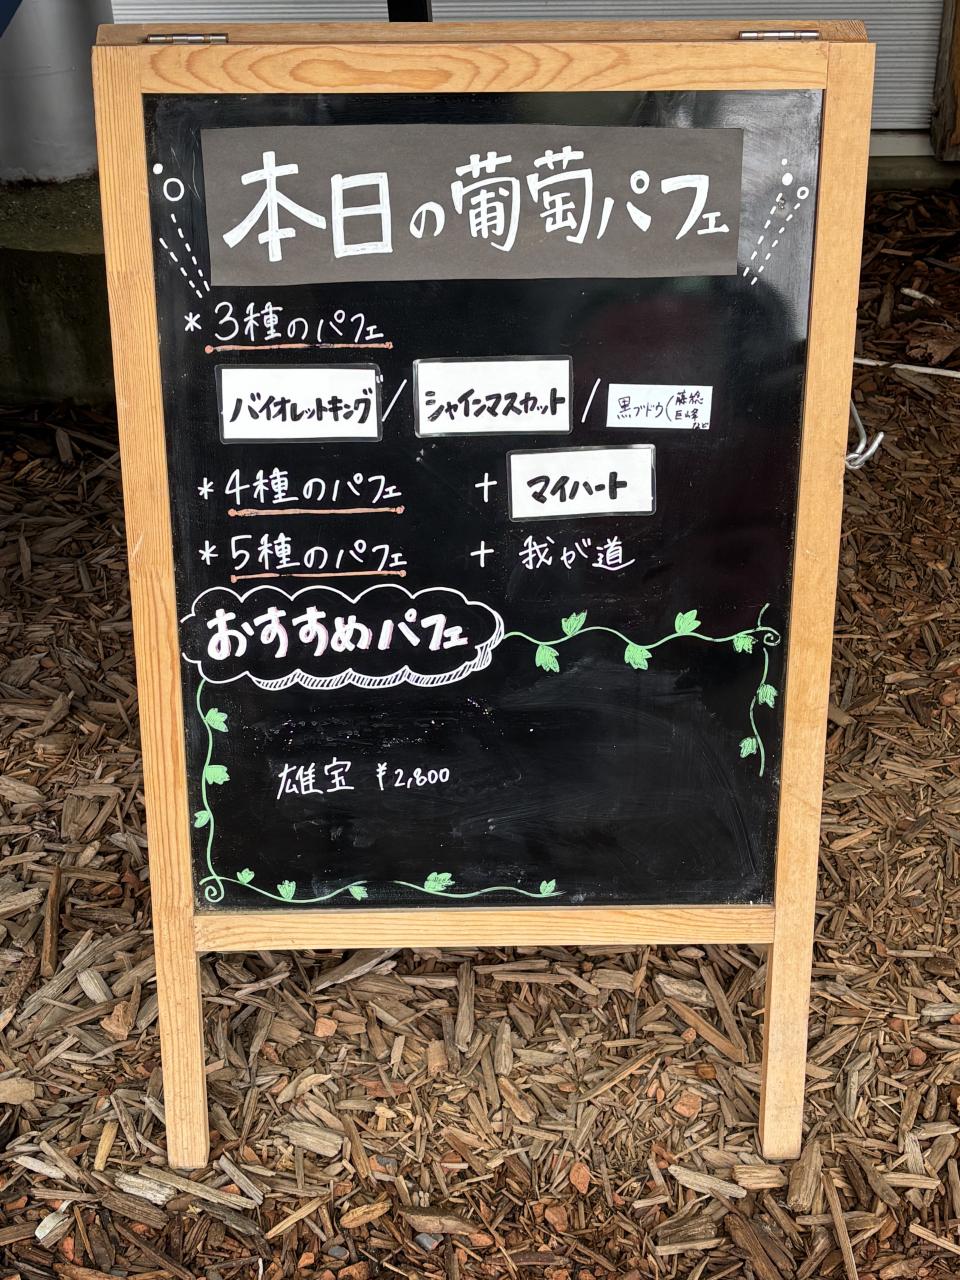 本日の葡萄パフェ
*3種のパフェ
バイオレットキング/シャインマスカット/黒ブドウ(藤稔
巨峰
など
*4種のパフェ + マイハート
*5種のパフェ + 我が道
おすすめパフェ
雄宝 ¥2,800